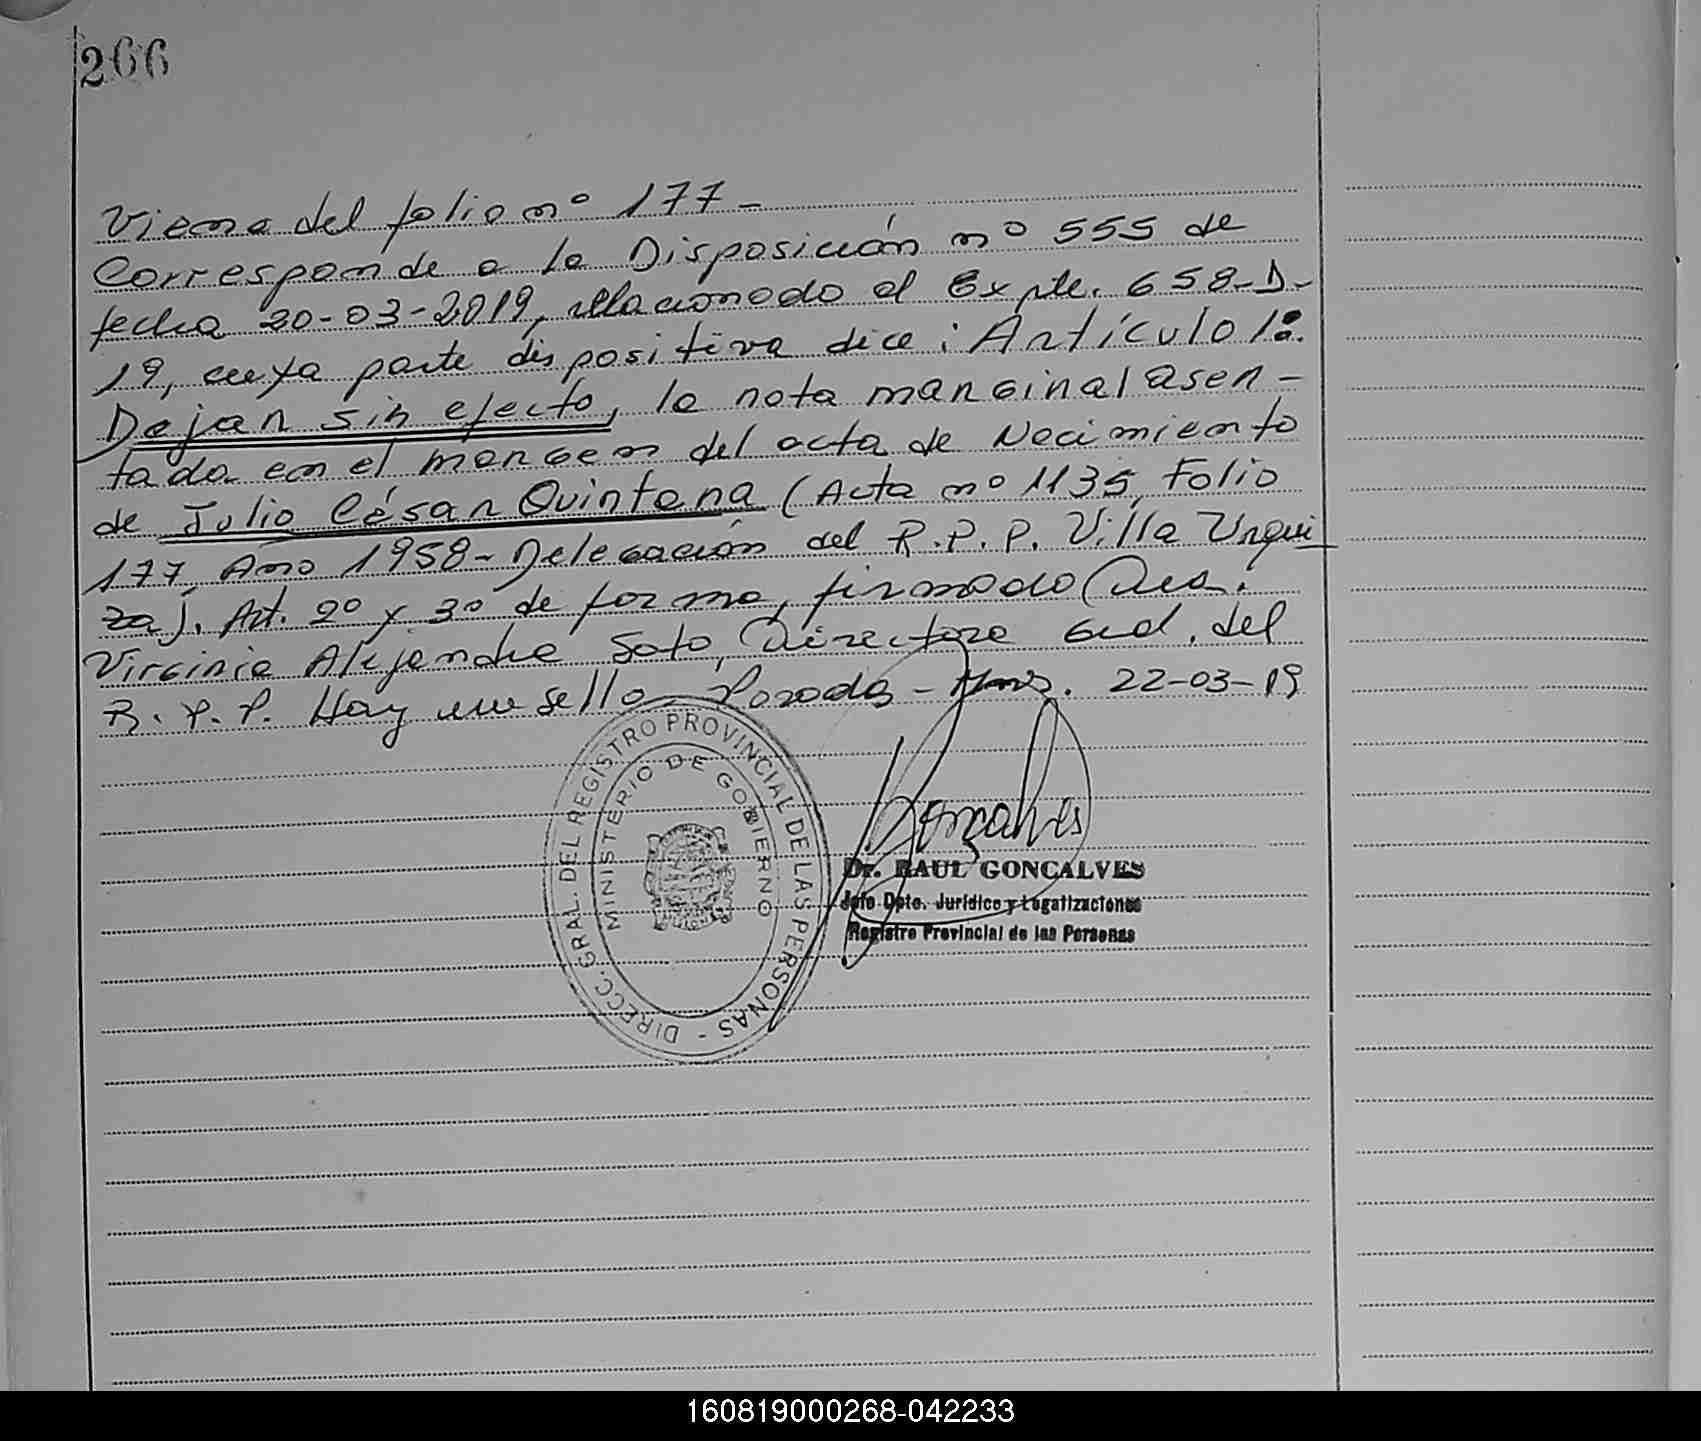 266
Viene del folio nº 177-
Corresponde a la Disposición nº 555 de
fecha 20-03-2019, relacionado al Expte. 658-D-
19, cuya parte dispositiva dice: Artículo 1º.
Dejar sin efecto, la nota marginal asen-
tada en el margen del acta de Nacimiento
de Julio César Quintana (Acta nº 1135, Folio
177 Año 1958- Delegación del R.P.P. Villa Urqui
za). Art. 2º y 3º de forma, firmado
Virginia Alejandra Soto, Directora Gral. del
R.P.P. Hay un sello- Posadas- Mnes. 22-03-19
DIRECC. GRAL. DEL REGISTRO PROVINCIAL DE LAS PERSONAS -
MINISTERIO DE GOBIERNO
Goncalves
Dr. RAUL GONCALVES
Jefe Dpto. Jurídico y Legalizaciones
Registro Provincial de las Personas
160819000268-042233